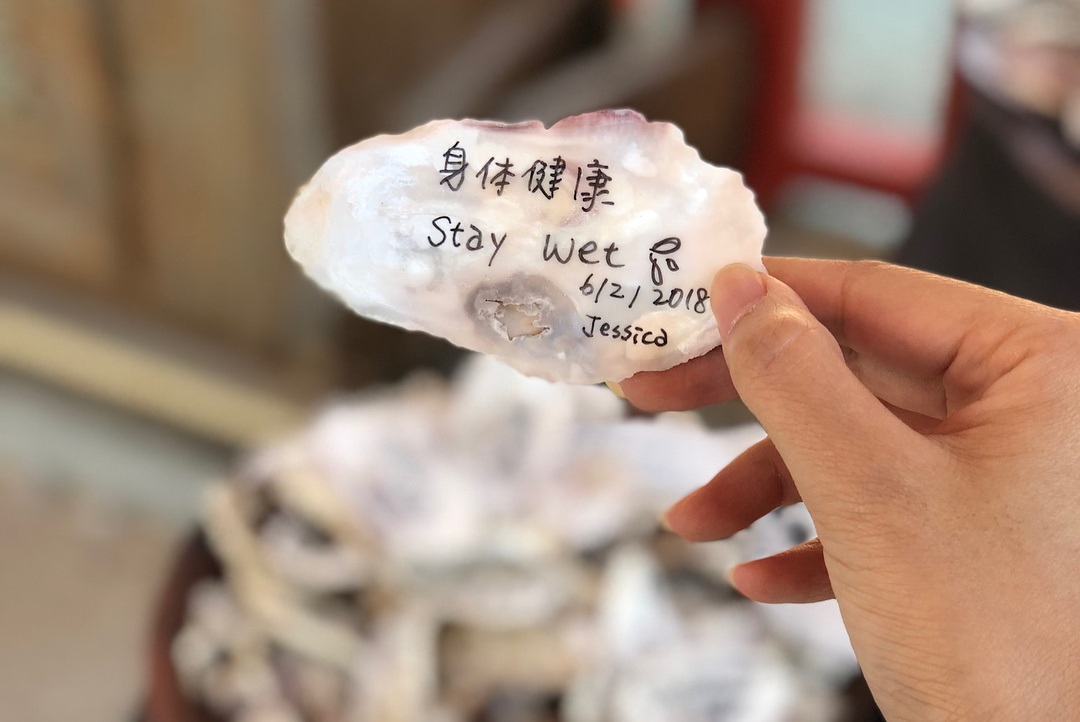 身体健康
Stay wet
6/2/2018
Jessica